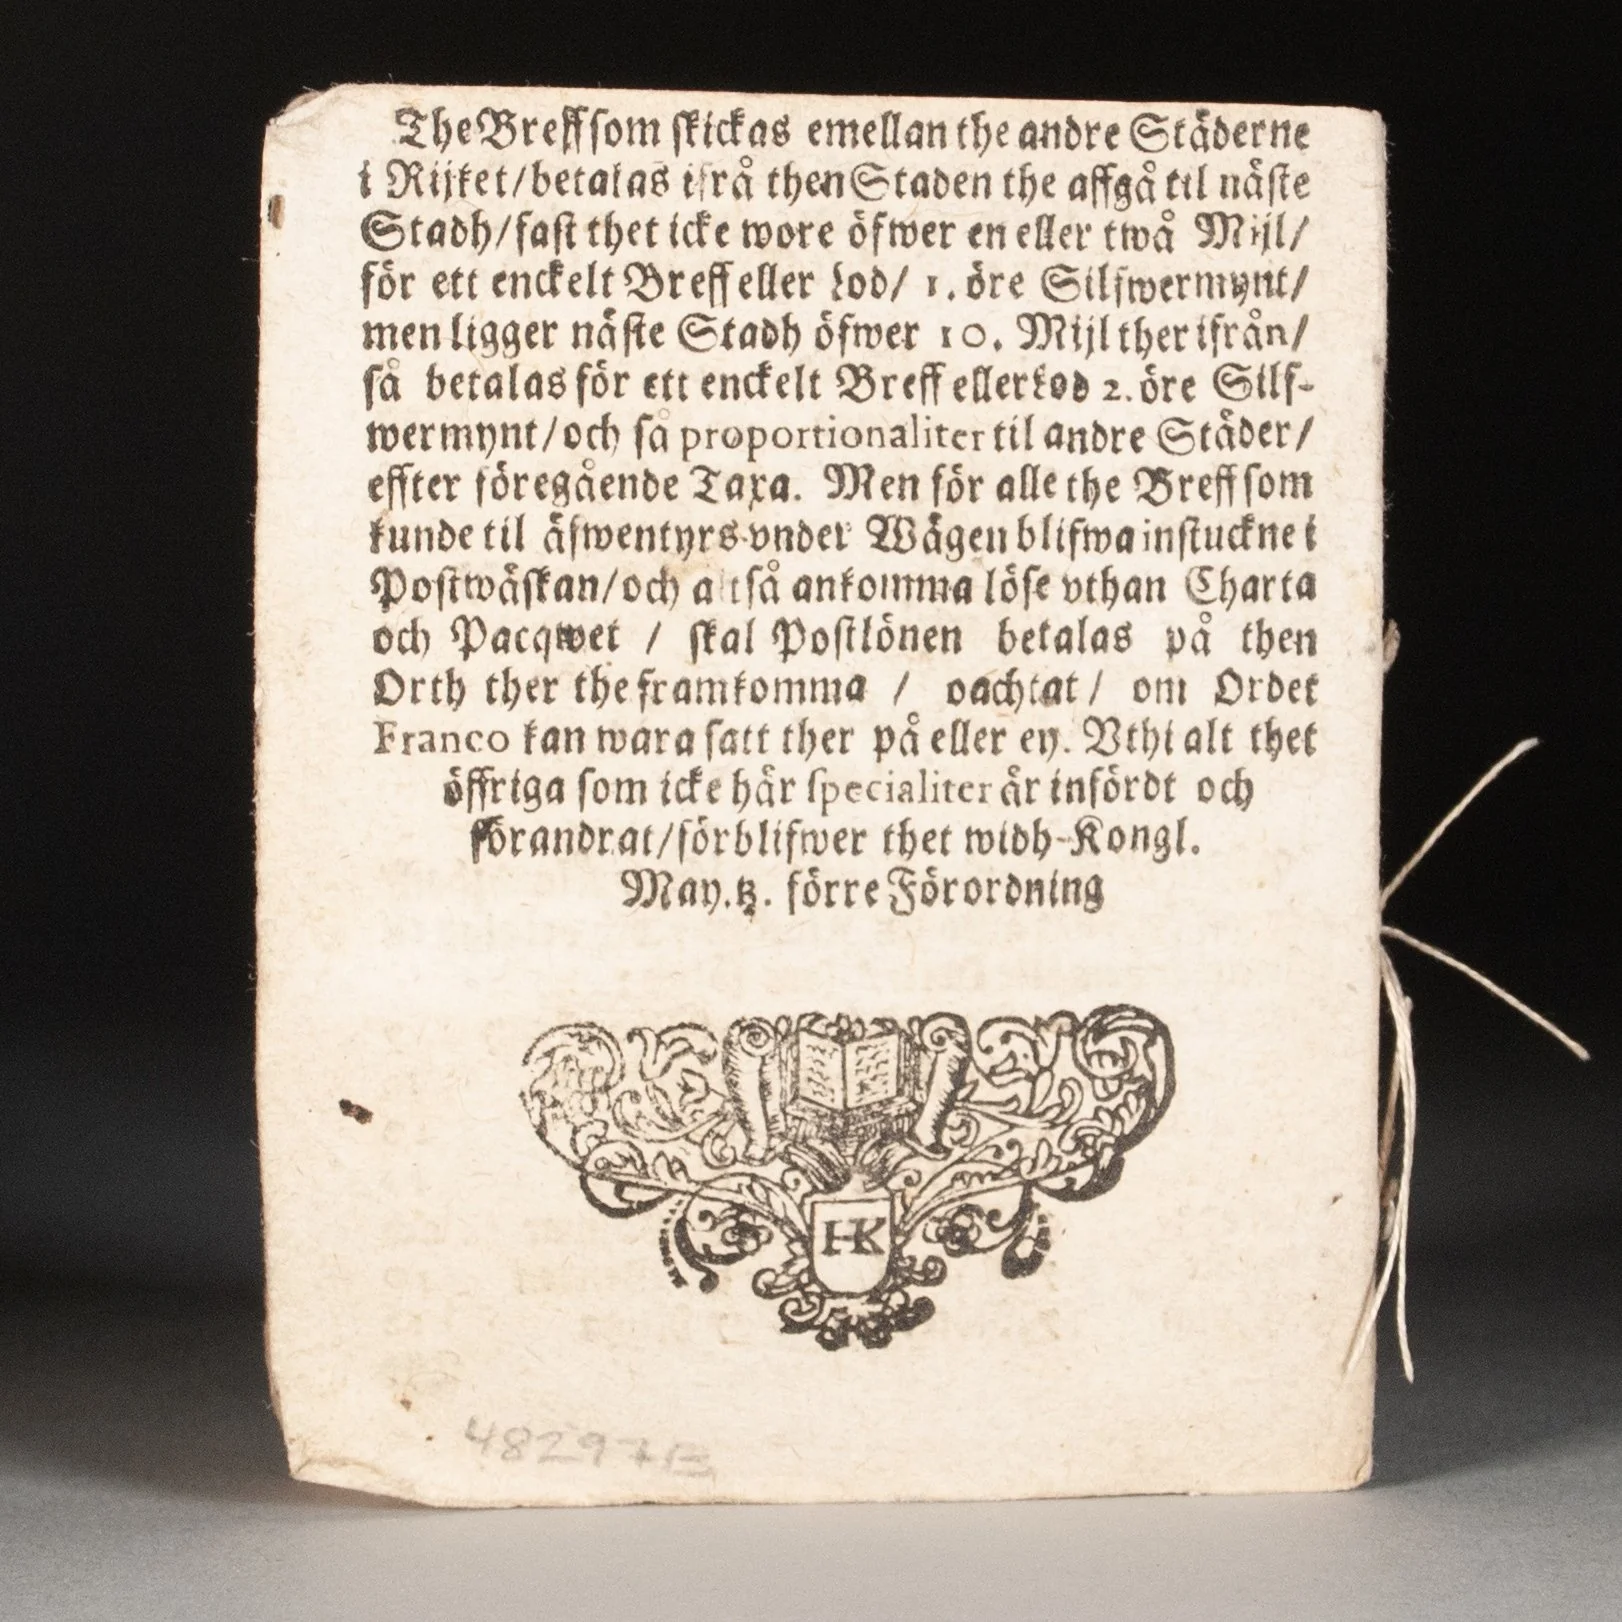 The Breff som skickas emellan the andre Städerne
i Rijket/ betalas ifrå then Staden the affgå til näste
Stadh/ fast thet icke wore öfwer en eller twå Mijl/
för ett enckelt Breff eller Lod/ 1. öre Silfwermynt/
men ligger näste Stadh öfwer 10. Mijl ther ifrån/
så betalas för ett enckelt Breff eller Lod 2. öre Silf-
wermynt/ och så proportionaliter til andre Städer/
effter föregående Taxa. Men för alle the Breff som
kunde til äfwentyrs vnder Wägen blifwa instuckne i
Postwäskan/ och altså ankomma löse vthan Charta
och Pacqwet / skal Postlönen betalas på then
Orth ther the framkomma / oachtat/ om Ordet
Franco kan wara satt ther på eller ey. Vthi alt thet
öffriga som icke här specialiter är infördt och
förandrat/ förblifwer thet widh Kongl.
May.tz. förre Förordning
HK
48297B